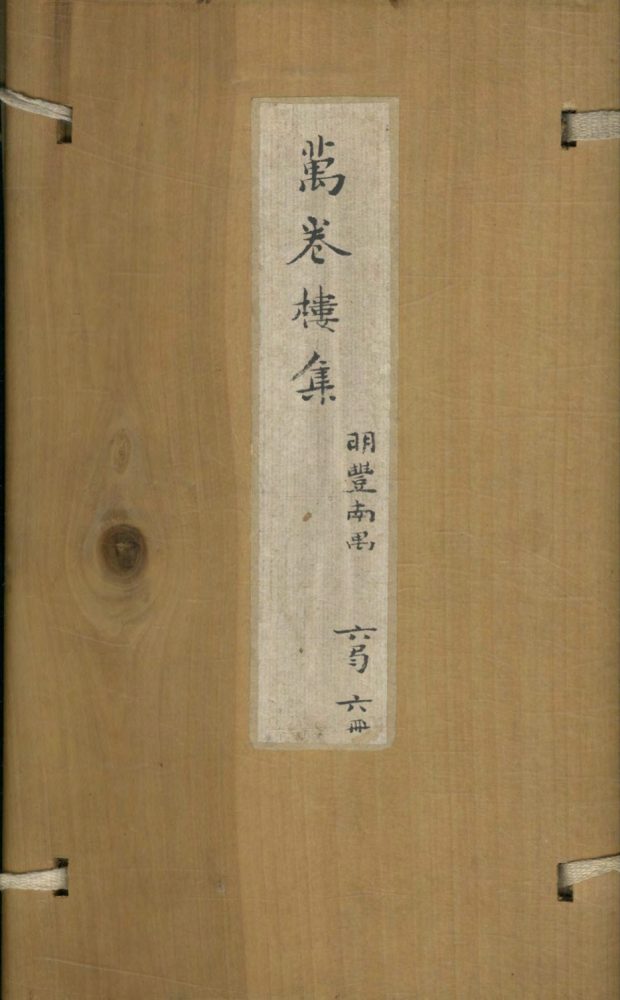 萬卷樓集
明豐南禺
六
六冊